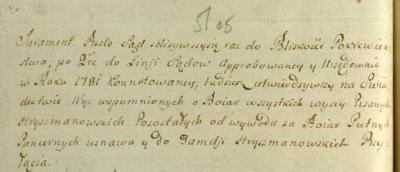 Jurament Preto Sąd zbliżywszysię raz do Bliskości Pokrewien
stwa; po 2re do Linji Sądow Approbowaney y Urzędownie
w Roku 1781 Konnotowaney; tudzież utwierdzywszy na Swia
dectwie Wyż wspomnionych o Boiar wszystkich wyżey Pisanych
Stryszmanowskich Pozostałych od wywodu za Boiar Putnych
Pancernych uznawa y do Familji Stryszmanowskich Przy
łącza.